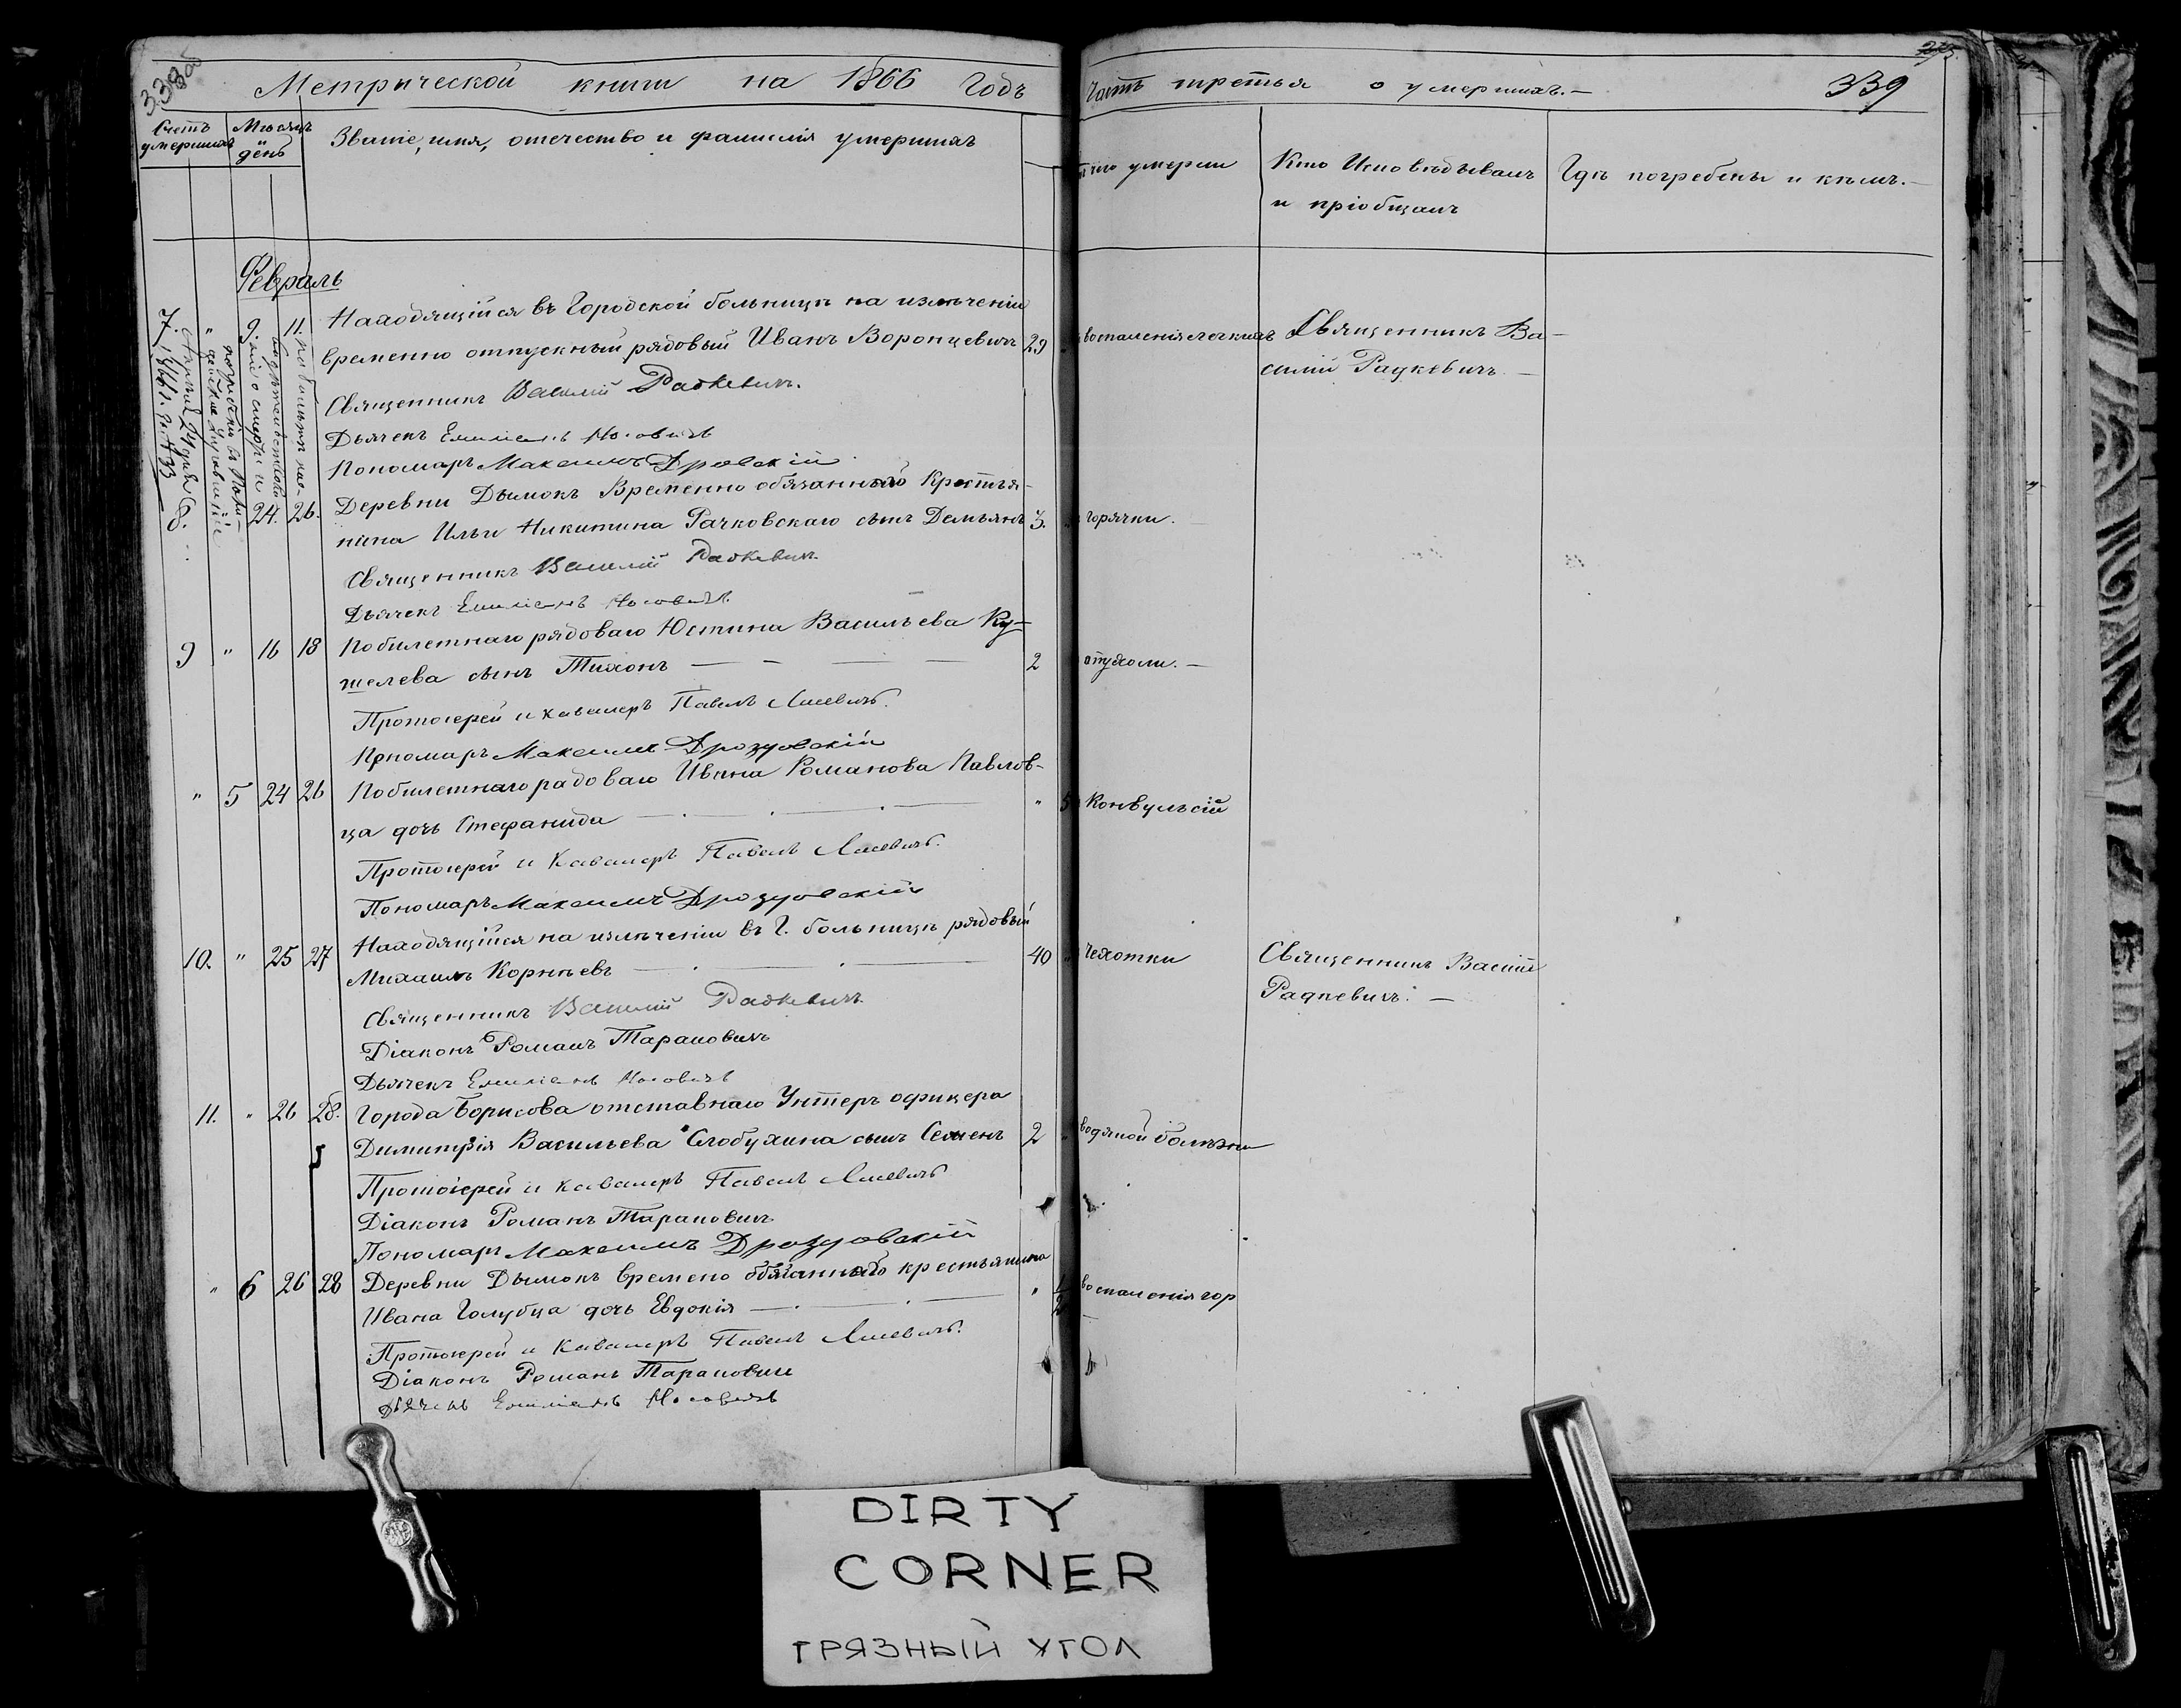 338об
Метрической книги на 1866 годъ
Счетъ умершихъ
Мѣсяцъ и день
Званіе, имя, отечество и фамилія умершихъ
Февраль
7. " 9. 11. Находящійся въ Городской больницѣ на излѣченіи
временно отпускный рядовый Иванъ Воронцевичъ 29
Священникъ Василій Радкевичъ.
Дьячекъ Емиліанъ Носовичъ
Пономарь Максимъ
8. 24. 26. Деревни Дымокъ Временно обязаннаго Крестья-
нина Ильи Никитина Рачковскаго сынъ Демьянъ 3.
Священникъ Василій Радкевичъ.
Дьячекъ Емиліанъ Носовичъ.
9 " 16 18 Побилетнаго рядоваго Юстина Васильева Ку-
шелева сынъ Тихонъ — 2
Протоіерей и кавалеръ Павелъ
Пономарь Максимъ Дроздовскій
" 5 24 26 Побилетнаго радоваго Ивана Романова Павлов-
ца дочь Стефанида — " 5
Протоіерей и Кавалеръ Павелъ
Пономарь Максимъ Дроздовскій
10. " 25 27 Находящійся на излѣченіи въ Г. больницѣ рядовый
Михаилъ Корнѣевъ — 40 "
Священникъ Василій Радкевичъ
Діаконъ Романъ Тарановичъ
Дьячекъ Емиліанъ Носовичъ
11. " 26 28. Города Борисова отставнаго Унтеръ офицера
Димитрія Васильева Слобухина сынъ Семенъ 2 "
Протоіерей и кавалеръ Павелъ
Діаконъ Романъ Тарановичъ
Пономарь Максимъ Дроздовскій
" 6 26 28 Деревни Дымокъ времено обязаннаго крестьянина
Ивана Голубца дочь Евдокія — " 1/2
Протоіерей и Кавалеръ Павелъ
Діаконъ Романъ Тарановичъ
Дьячекъ Емиліанъ Носовичъ
Часть третья о умершихъ.—
339
чего умерли
Кто Исповѣдывалъ
и пріобщалъ
Гдѣ погребены и кѣмъ.—
воспаленія легкихъ
Священникъ Ва-
силій Радкевичъ —
горячки.
опухоли. —
Конвульсій
Чахотки
Священникъ Василій
Радкевичъ. —
водяной болѣзни
воспаленія гор
DIRTY
CORNER
ГРЯЗНЫЙ УГОЛ